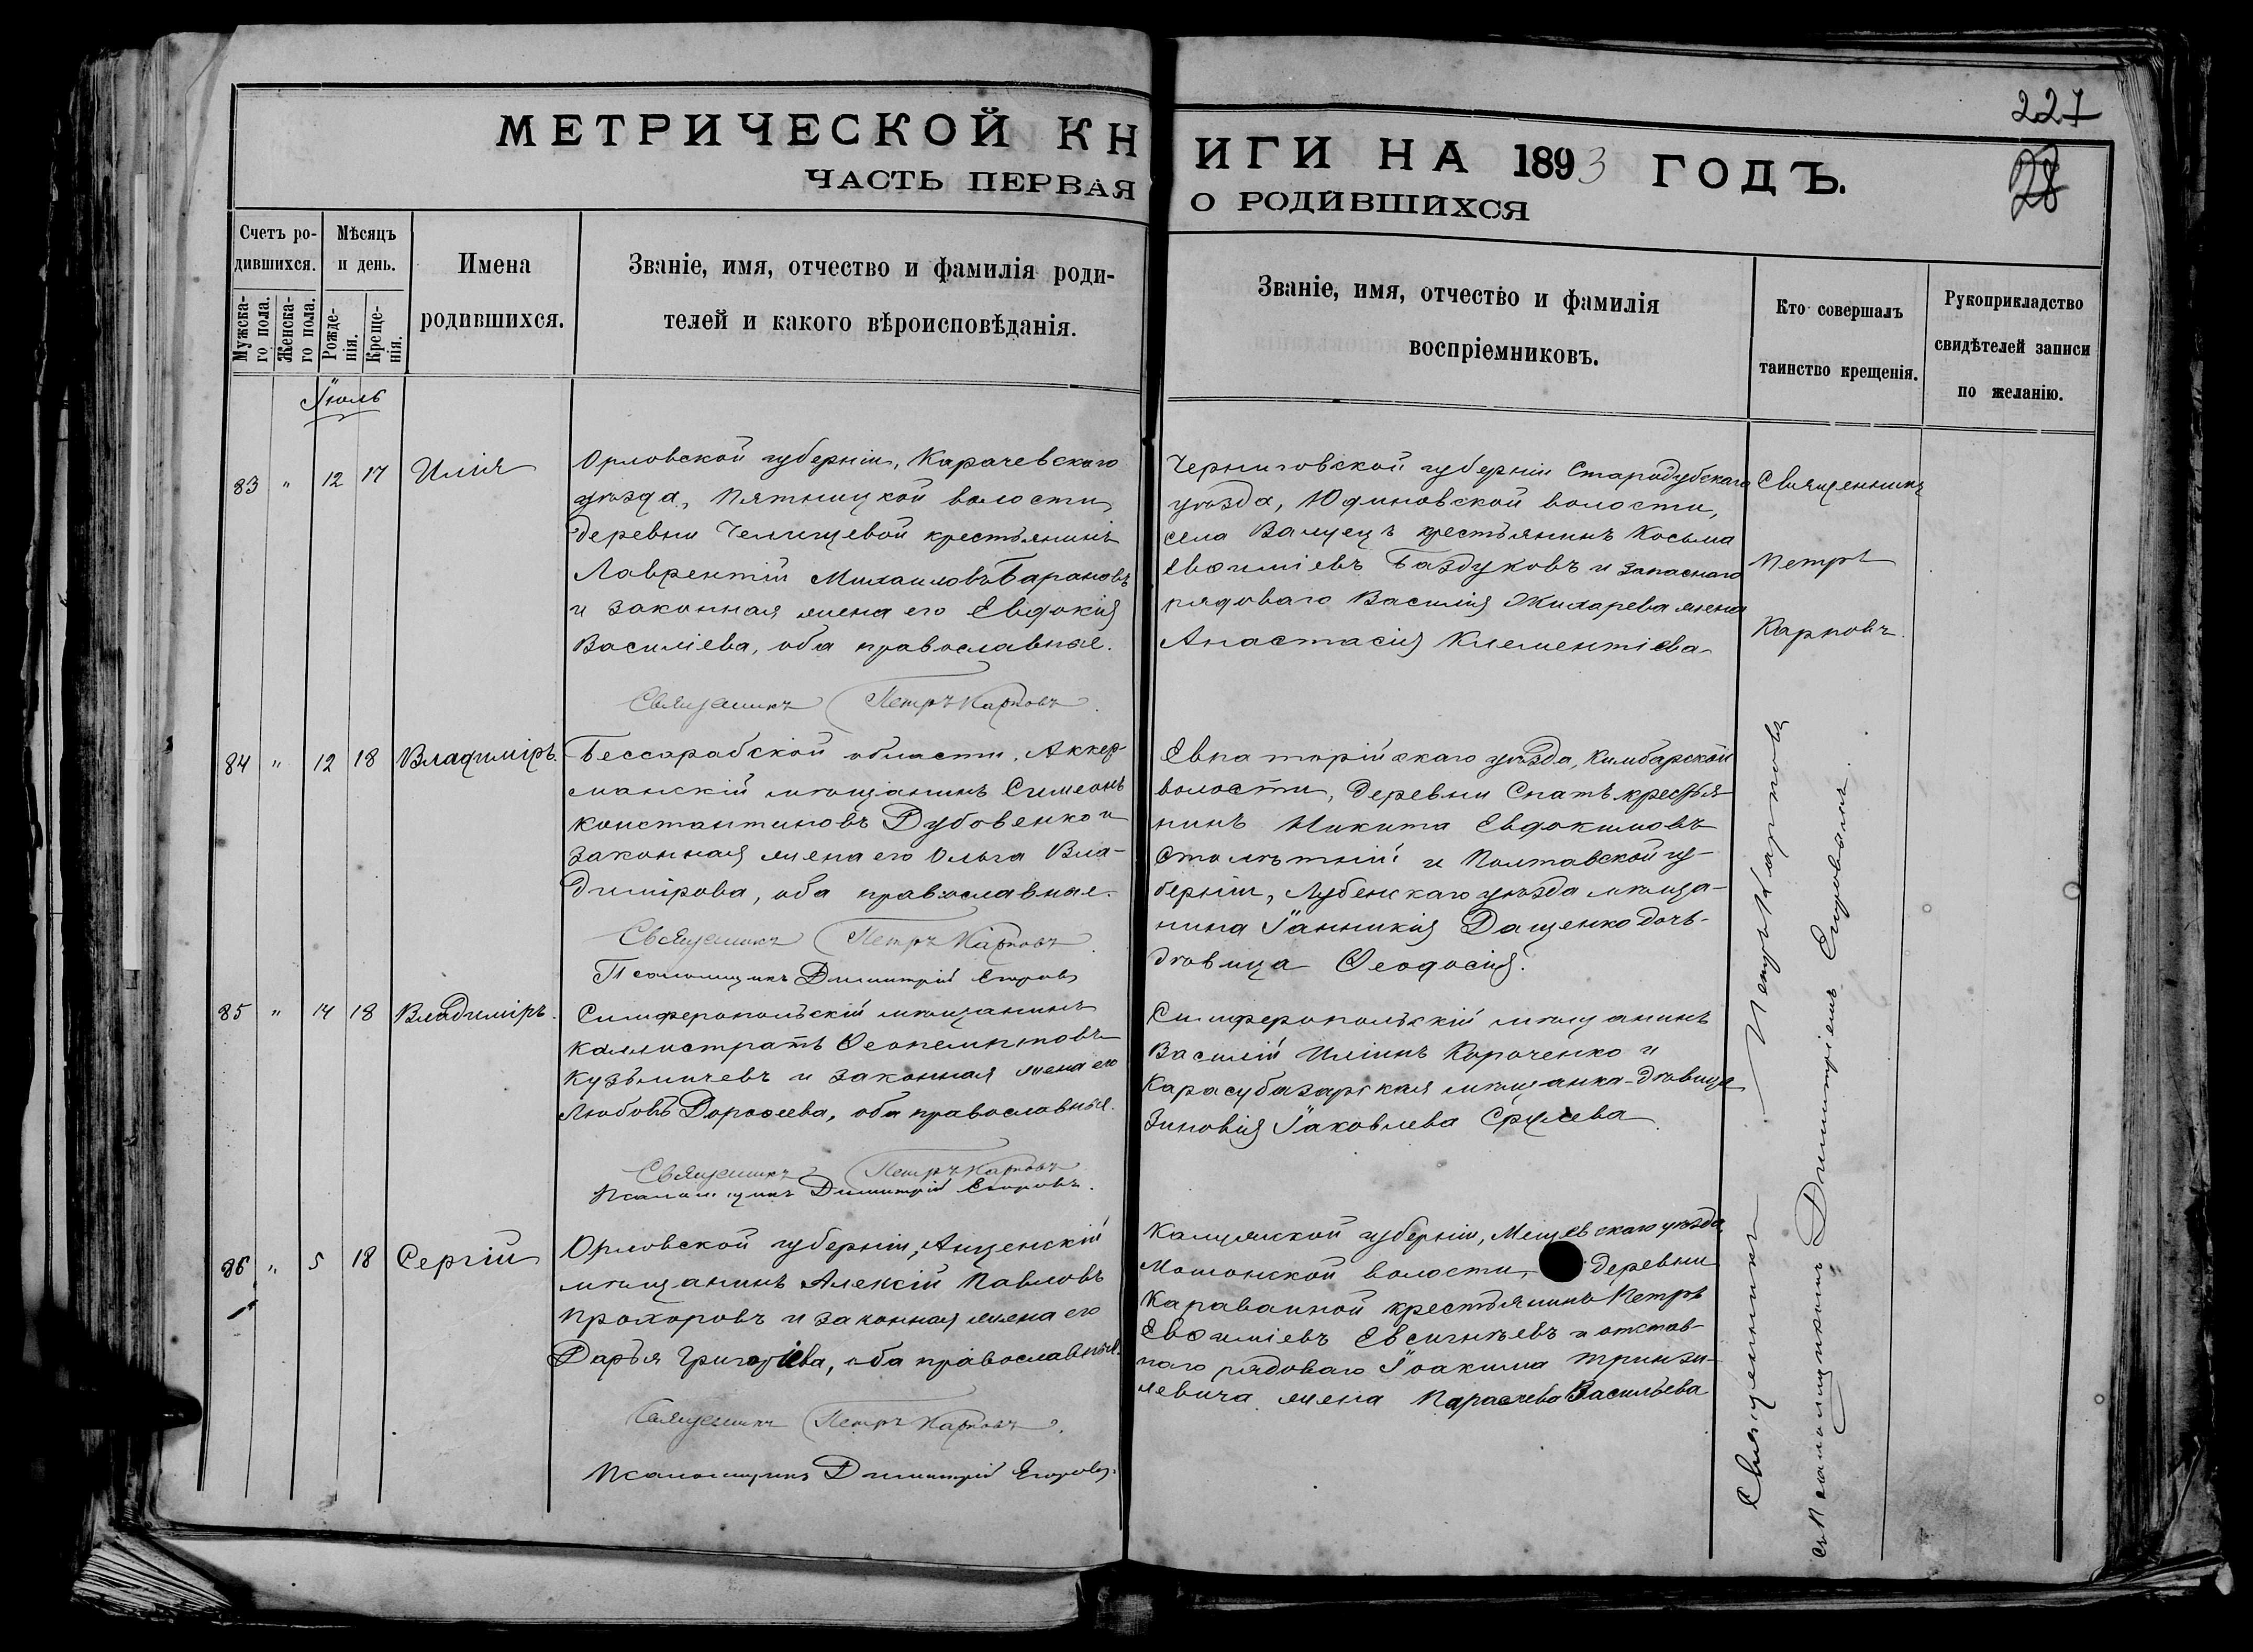 227
28
МЕТРИЧЕСКОЙ КНИГИ НА 1893 ГОДЪ.
ЧАСТЬ ПЕРВАЯ О РОДИВШИХСЯ
Счетъ ро-
дившихся.
Мужска-
го пола.
Женска-
го пола.
Мѣсяцъ
и день.
Рожде-
нія.
Креще-
нія.
Имена
родившихся.
Званіе, имя, отчество и фамилія роди-
телей и какого вѣроисповѣданія.
Званіе, имя, отчество и фамилія
воспріемниковъ.
Кто совершалъ
таинство крещенія.
Рукоприкладство
свидѣтелей записи
по желанію.
Іюль
83 " 12 17 Илія
Орловской губерніи, Карачевскаго
уѣзда, Пятницкой волости,
деревни Челищевой крестьянинъ
Лаврентій Михаиловъ Барановъ
и законная жена его Евдокія
Василіева, оба православные.
Священникъ Петръ Карповъ.
Черниговской губерніи Стародубскаго
уѣзда, Юдиновской волости,
села крестьянинъ Косьма
Евѳиміевъ Баздуковъ и запаснаго
рядоваго Василія Жихарева жена
Анастасія Клементіева
Священникъ
Петръ
Карповъ.
84 " 12 18 Владиміръ.
Бессарабской области, Аккер-
манскій мѣщанинъ Симеонъ
Константиновъ Дубовенко и
законная жена его Ольга Вла-
димірова, оба православные.
Священникъ Петръ Карповъ.
Псаломщикъ Димитрій Егоровъ
Евпаторійскаго уѣзда, Кимбарской
волости, деревни Спатъ крестья-
нинъ Никита Евдокимовъ
Столѣтній и Полтавской гу-
берніи, Лубенскаго уѣзда мѣща-
нина Іанникія Дащенко дочь-
дѣвица Ѳеодосія.
85 " 14 18 Владиміръ.
Симферопольскій мѣщанинъ
Каллистратъ Ѳеопемптовъ
Кузьмичевъ и законная жена его
Любовь Дороѳеева, оба православные.
Священникъ Петръ Карповъ
Псаломщикъ Димитрій Егоровъ.
Симферопольскій мѣщанинъ
Василій Иліинъ Короченко и
Карасубазарская мѣщанка-дѣвица
Зиновія Іаковлева
86 " 5 18 Сергій
Орловской губерніи, мѣщанинъ Алексій Павловъ
Прохоровъ и законная жена его
Дарья Григоріева, оба православные.
Священникъ Петръ Карповъ.
Псаломщикъ Димитрій Егоровъ.
Калужской губерніи, Мещевскаго уѣзда,
Мошонской волости, деревни
Караваиной крестьянинъ Петръ
Евѳиміевъ Евсигнѣевъ и отстав-
наго рядоваго Іоакима
жена Параскева Васильева
Священникъ Петръ Карповъ
съ Псаломщикомъ Димитріемъ Егоровымъ.